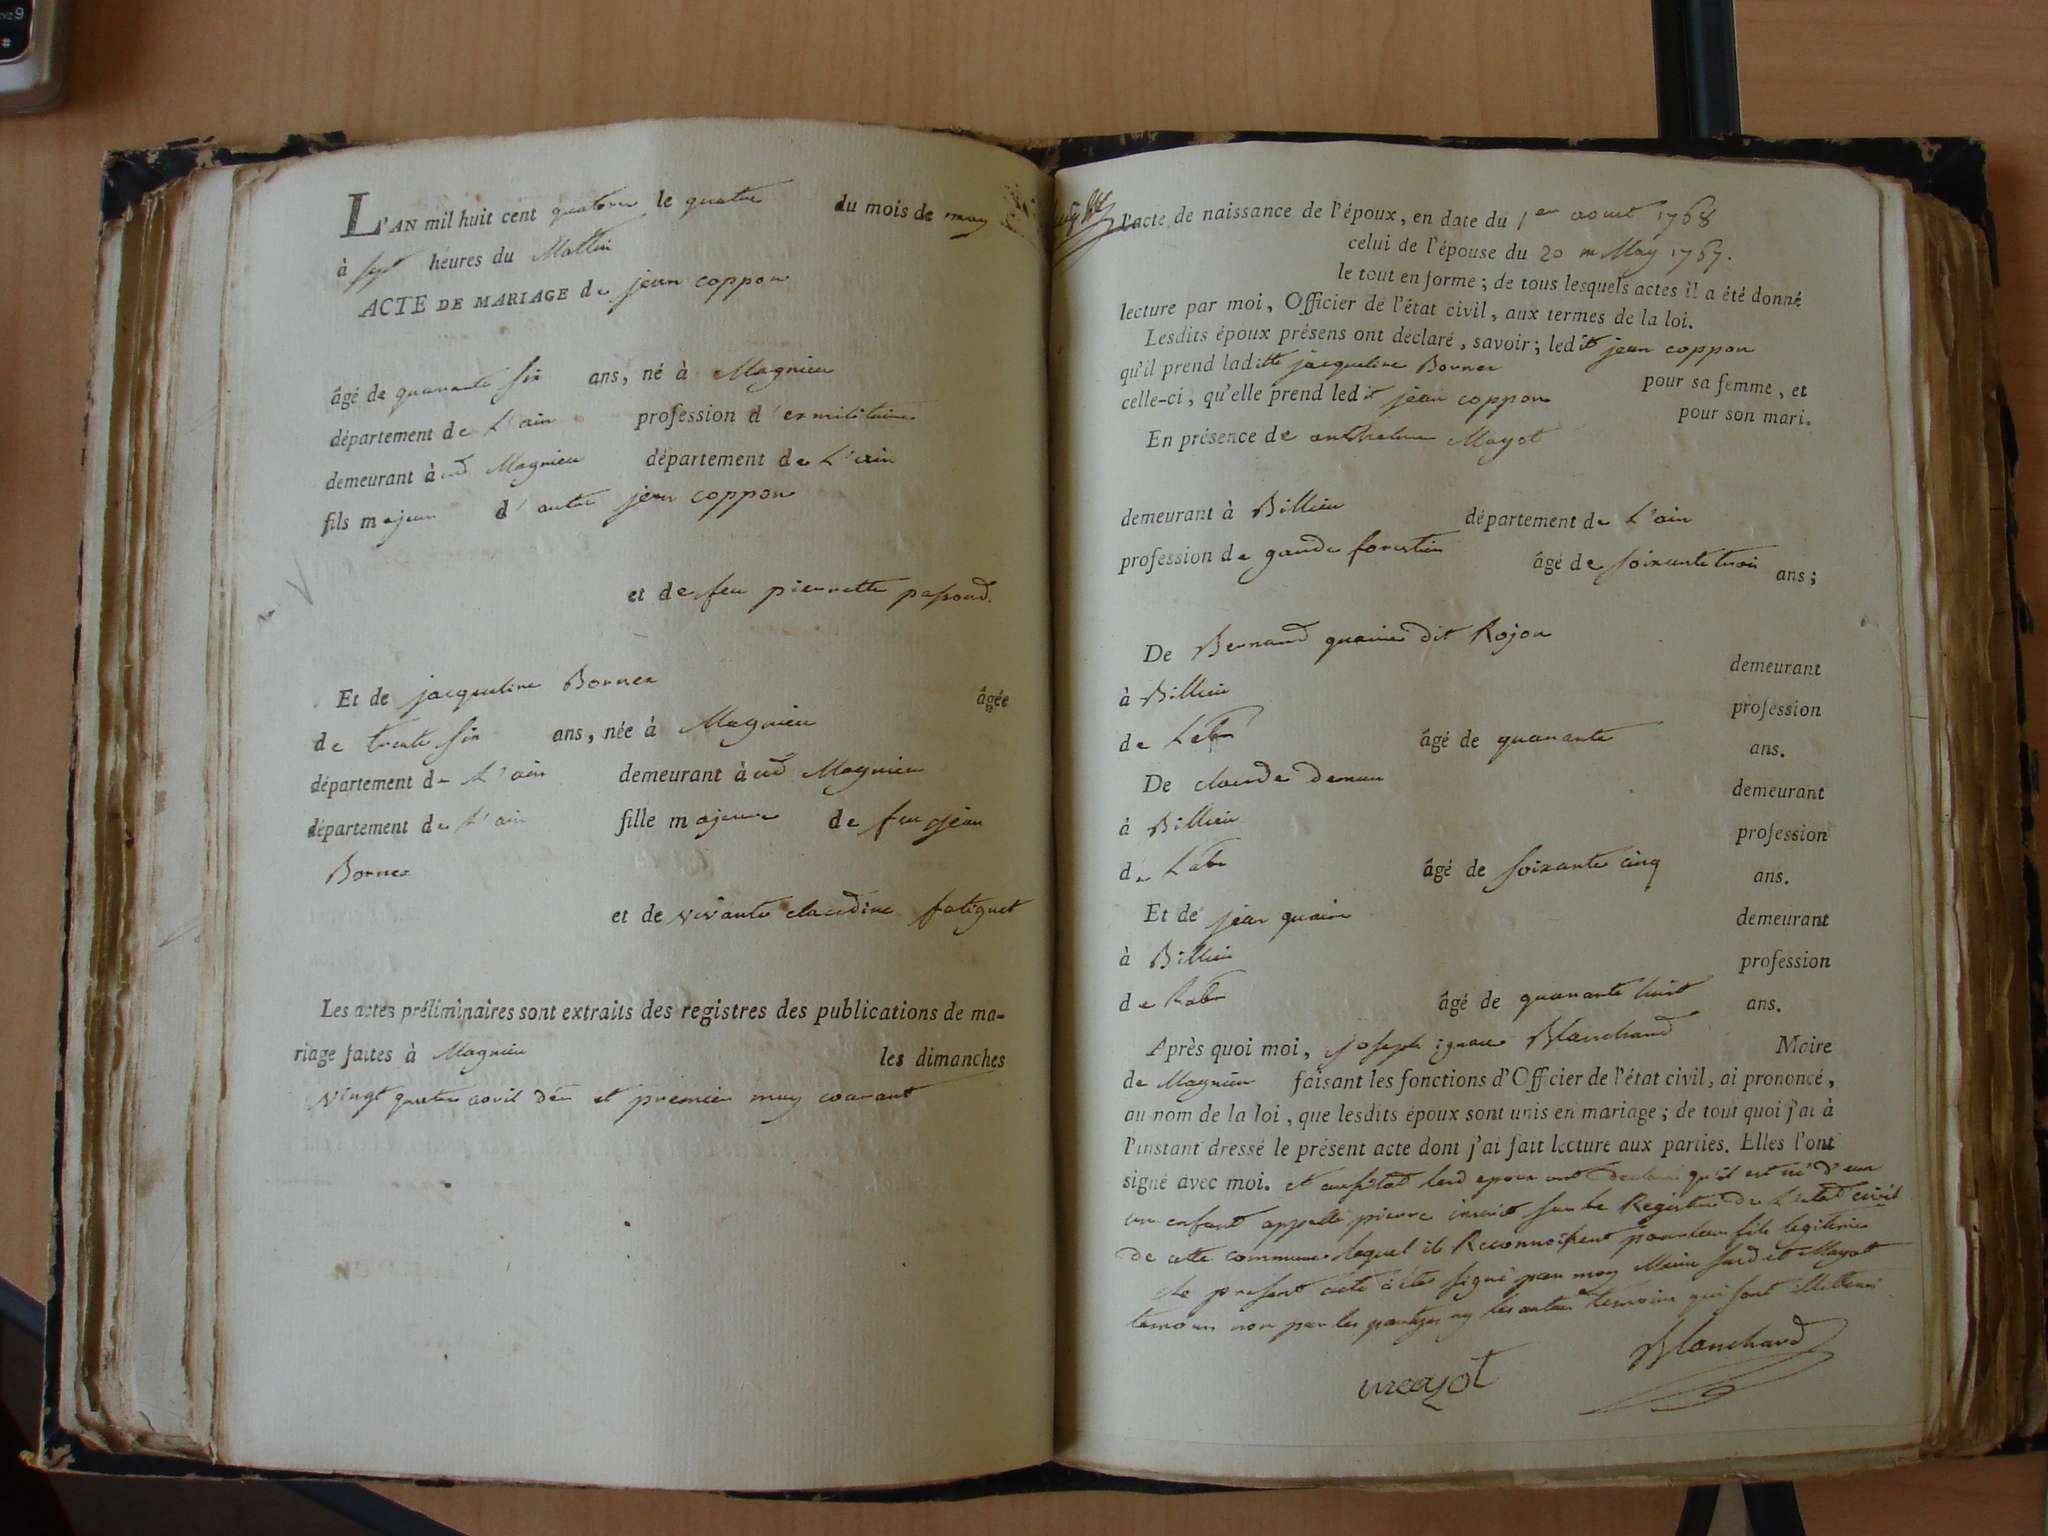 L'AN mil huit cent quatorze le quatre du mois de may
à sept heures du Mattin
ACTE DE MARIAGE de jean coppon
âgé de quarante six ans, né à Magnieu
département de L'ain profession d'exmilitaire
demeurant à aud Magnieu département de L'ain
fils majeur d'autre jean coppon
et de feu pierrette passoud.
Et de jacqueline Borner âgée
de trente six ans, née à Magnieu
département de L'ain demeurant à aud Magnieu
département de L'ain fille majeure de feu jean
Borner
et de vivante claudine fatiguet
Les actes préliminaires sont extraits des registres des publications de ma-
riage faites à Magnieu les dimanches
vingt quatre avril der et premier may courant
l'acte de naissance de l'époux, en date du 1er aout 1768
celui de l'épouse du 20 me May 1767.
le tout en forme; de tous lesquels actes il a été donné
lecture par moi, Officier de l'état civil, aux termes de la loi.
Lesdits époux présens ont déclaré, savoir; ledit jean coppon
qu'il prend laditte jacqueline Borner pour sa femme, et
celle-ci, qu'elle prend ledit jean coppon pour son mari.
En présence de anthelme Mayot
demeurant à Billieu département de L'ain
profession de garde forestier âgé de soixante trois ans;
De Bernard quaire dit Rojon demeurant
à Billieu profession
de Labr âgé de quarante ans.
De claude demeurant
à Billieu profession
de Labr âgé de soixante cinq ans.
Et de jean quaire demeurant
à Billieu profession
de Labr âgé de quarante huit ans.
Après quoi moi, joseph ignace Blanchard Maire
de Magnieu faisant les fonctions d'Officier de l'état civil, ai prononcé,
au nom de la loi, que lesdits époux sont unis en mariage; de tout quoi j'ai à
l'instant dressé le présent acte dont j'ai fait lecture aux parties. Elles l'ont
signé avec moi. et aussitot lesd epoux ont declaré qu'il est né d'eux
un enfant appellé pierre inscrit sur le Registre de L'etat civil
de cette commune lequel ils Reconnoissent pour leur fils legitime
Le present acte a été signé par moy Maire susdit et Mayot
temoin non par les parties ny les autres temoins qui sont illitteré
mayot Blanchard